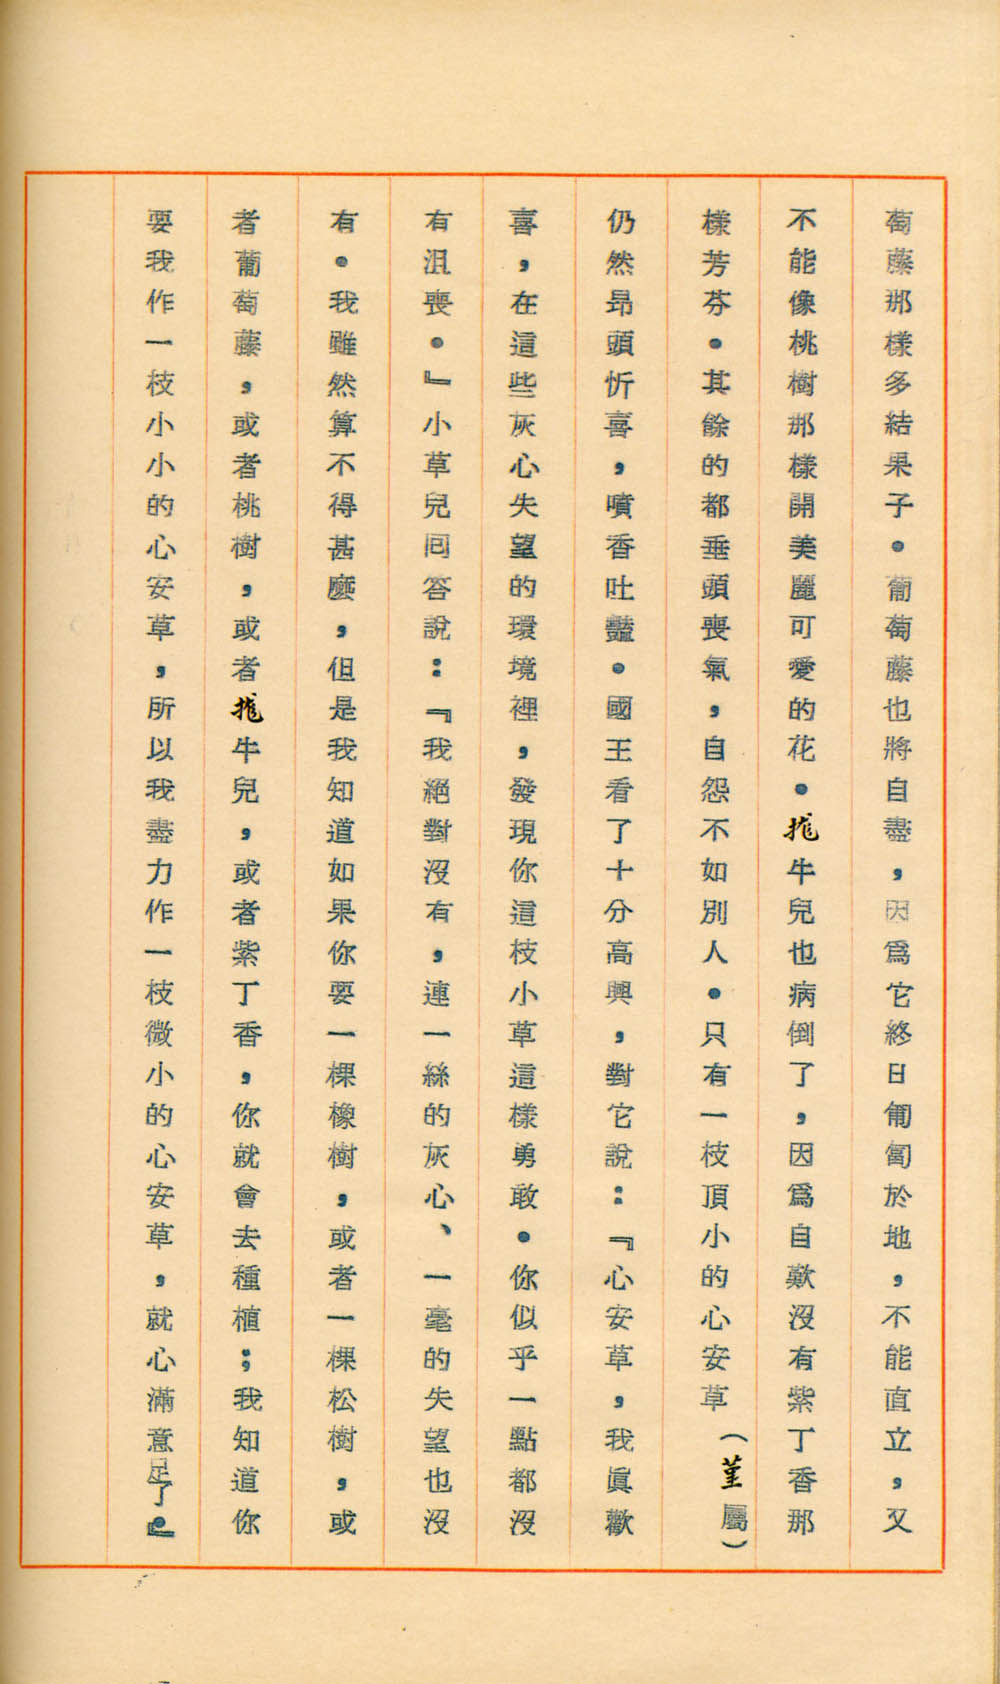 萄藤那樣多結果子。葡萄藤也將自盡，因爲它終日匍匐於地，不能直立，又
不能像桃樹那樣開美麗可愛的花。牻牛兒也病倒了，因爲自歎沒有紫丁香那
樣芳芬。其餘的都垂頭喪氣，自怨不如別人。只有一枝頂小的心安草（堇屬）
仍然昂頭忻喜，噴香吐豔。國王看了十分高興，對它說：『心安草，我眞歡
喜，在這些灰心失望的環境裡，發現你這枝小草這樣勇敢。你似乎一點都沒
有沮喪。』小草兒回答說：『我絕對沒有，連一絲的灰心、一毫的失望也沒
有。我雖然算不得甚麼，但是我知道如果你要一棵橡樹，或者一棵松樹，或
者葡萄藤，或者桃樹，或者牻牛兒，或者紫丁香，你就會去種植；我知道你
要我作一枝小小的心安草，所以我盡力作一枝微小的心安草，就心滿意足了。』